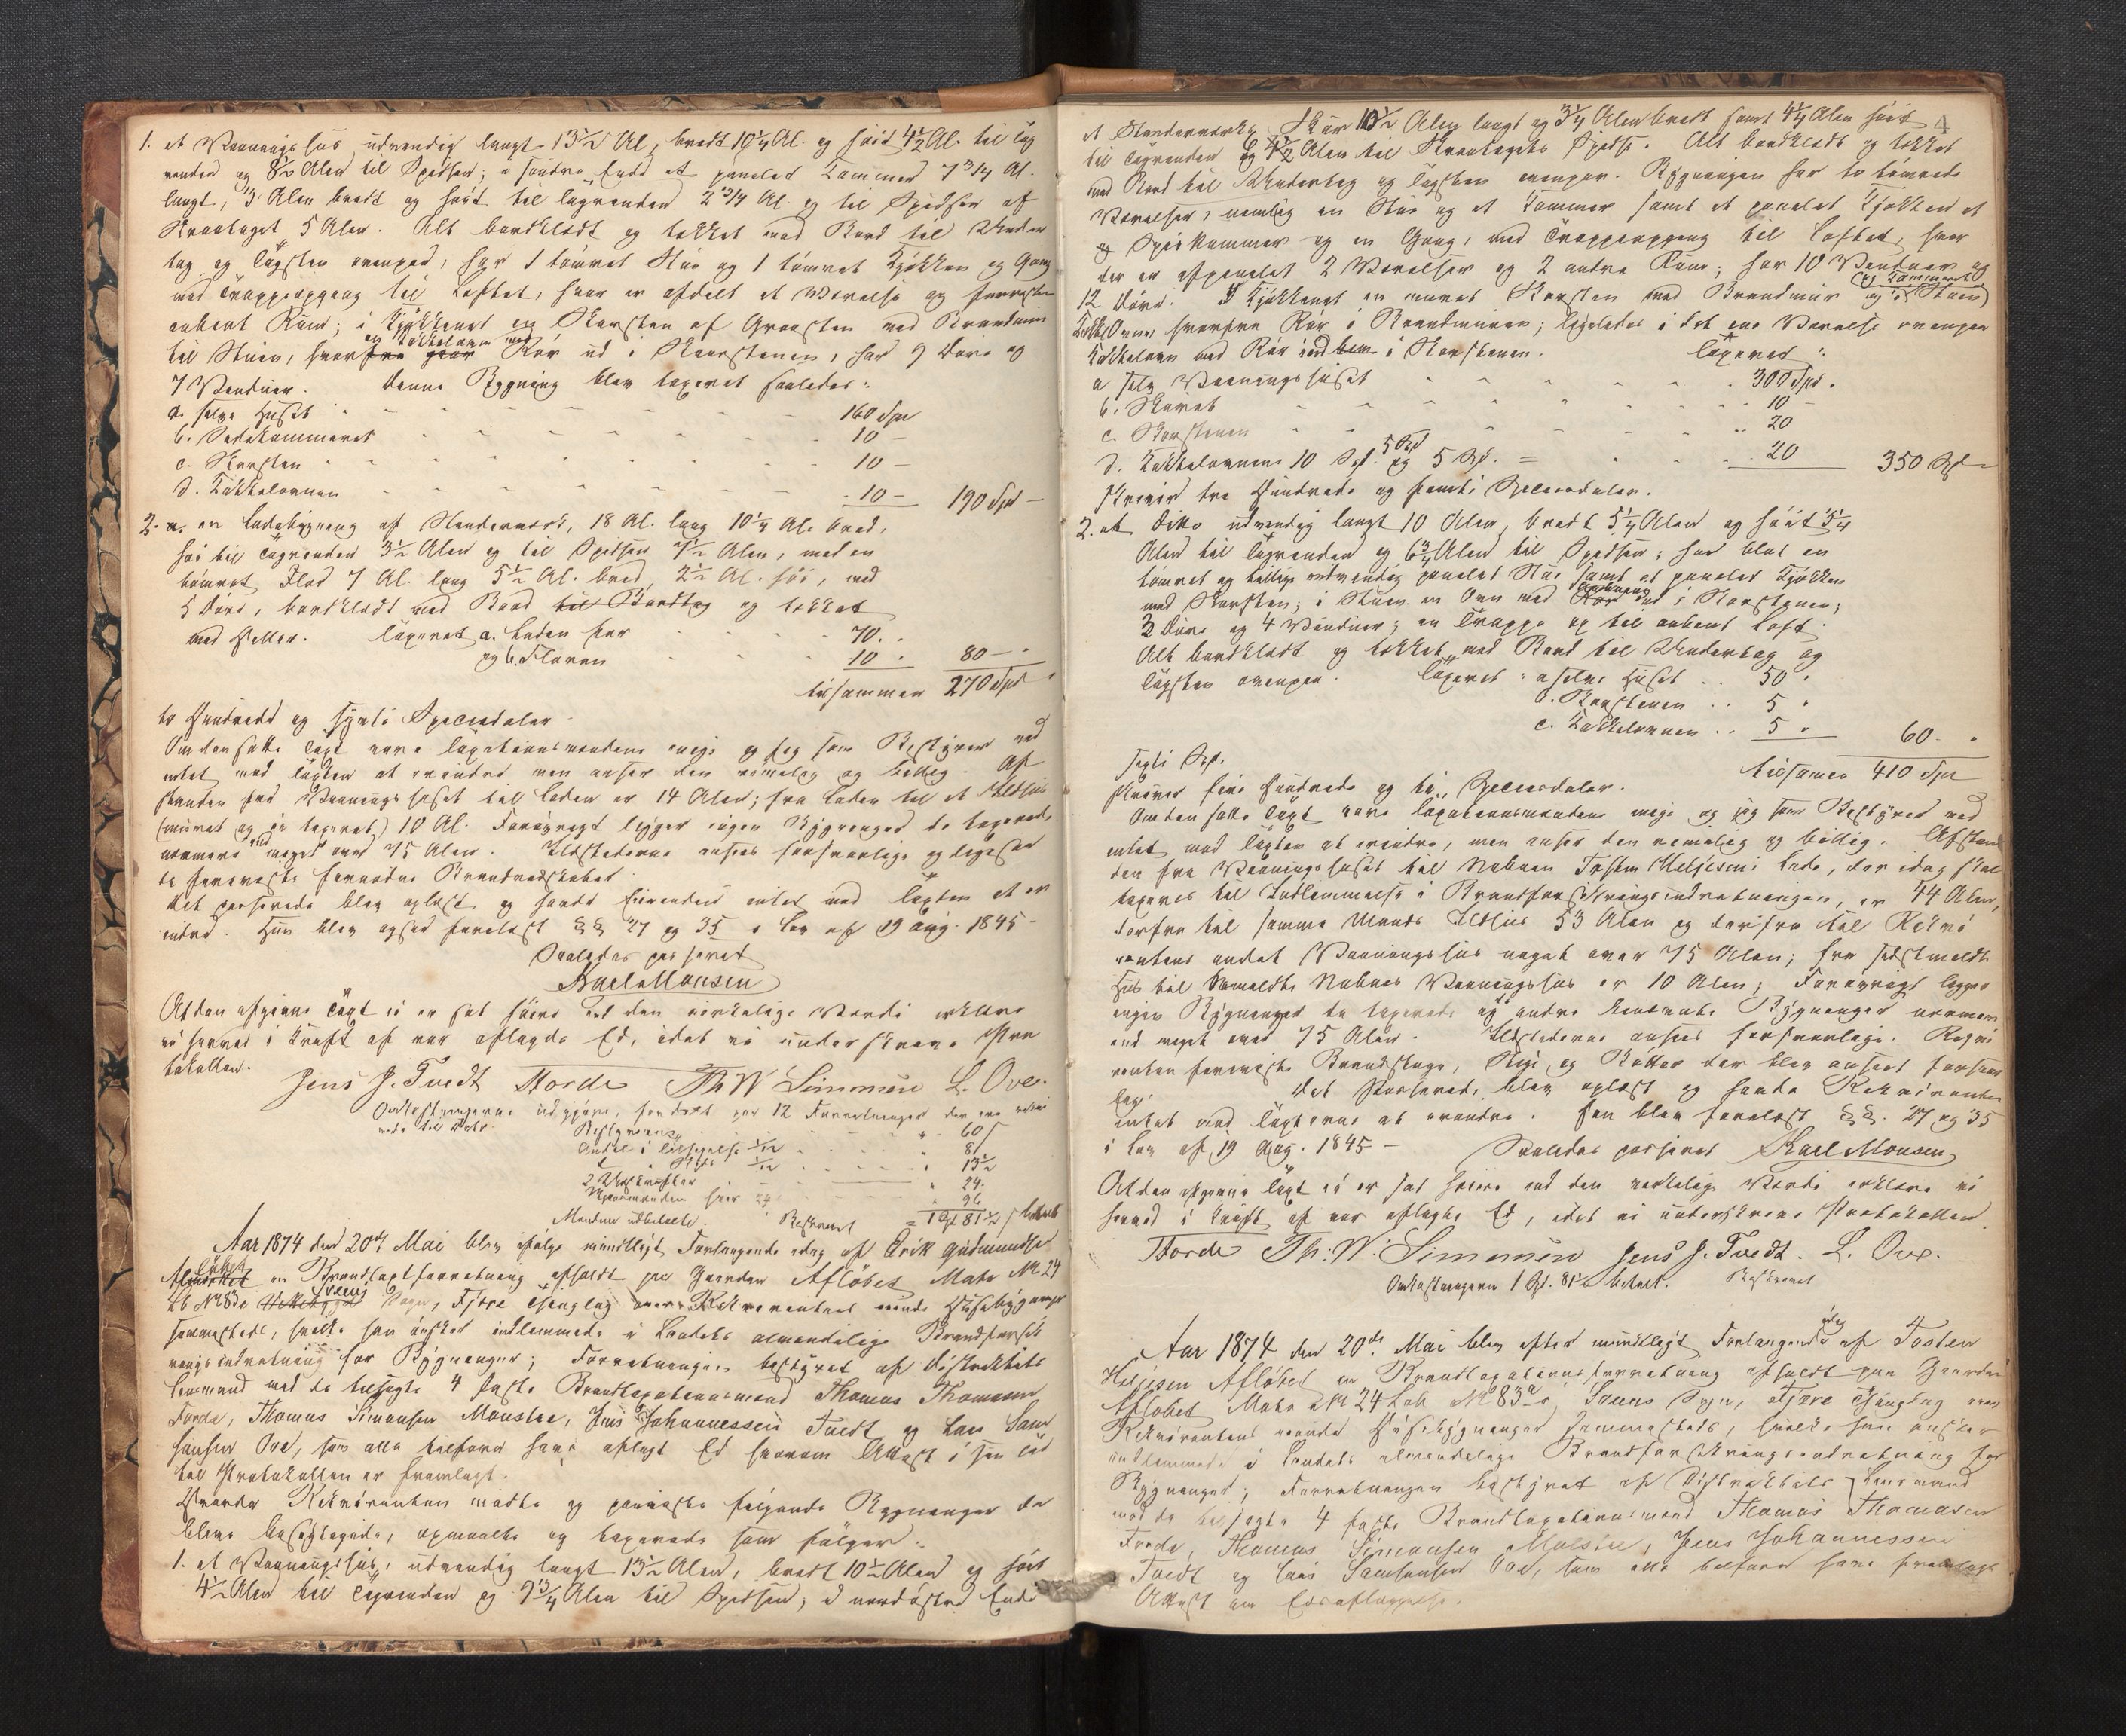 1. et Vaaningshus udvendig langt 13½ Al, bredt 10¼ Al. og høit 4½ Al. til Tag
renden og 8½ Alen til Spidsen; i søndre Ende et panelet Kammer 7¾ Al.
langt, 3 Alen bredt og høit til tagrenden 2¾ Al. og til Spidsen af
Skraataget 5 Alen. Alt bordklædt og tækket med Bord til Under
tag og Tagsten ovenpaa, har 1 tømret Stue og 1 tømret Kjøkken og Gang
med Trappeopgang til Loftet, hvor er afdelt et Værelse og forresten
aabent Rum; i Kjøkkenet en Skorsten af Graasten med Brandmur
til Stuen, hvor Kakkelovn med Rør ud i Skorstenen, har 9 Døre og
7 Vinduer. Denne Bygning blev taxeret saaledes:
a. selve Huset 160 Spd
b. Sidekammeret 10 –
c. Skorsten 10 –
d. Kakkelovnen 10 – 190 Spd –
2. en Ladebygning af Stenderværk, 18 Al. lang 10¼ Al. bred,
høi til Tagrenden 3½ Alen og til Spidsen 7½ Alen, med en
tømret Flor 7 Al. lang 5½ Al. bred, 2½ Al. høi, med
5 Døre, bordklædt med Bord til Bordtag og tækket
med Heller. Taxeret a. Laden for 70.
og b. Floren 10 80 –
tilsammen 270 Spd
to Hundrede og sytti Speciedaler.
Om den satte Taxt vare Taxationsmændene enige og jeg som Bestyrer ved
intet mod Taxten at erindre men anser den rimelig og billig. Af
standen fra Vaaningshuset til Laden er 14 Alen; fra Laden til et Ildhus
(muret og ei taxeret) 10 Al. Forøvrigt ligger ingen Bygninger de taxerede
nærmere end noget over 75 Alen. Ildstederne ansees forsvarlige og ligesaa
de foreviste fornødne Brandredskaber.
Det passerede blev oplæst og havde Eierinden intet mod Taxten at er
indre. Hun blev ogsaa forelæst §§ 27 og 35 i Lov af 19 Aug. 1845 –
Saaledes passeret
Karl Monsen
At den afgivne Taxt ei er sat høiere end den virkelige Værdi erklære
vi herved i Kraft af vor aflagte Ed, idet vi underskrive Pro
tokollen.
Jens J. Tvedt Förde Th W Simonsen L. Ove.
Omkostningerne udgjøre, fordelt paa 12 Forretninger
Bestyreren 60 s
Andel i tilsigelse 1/12 8
1/12 13½
24.
96
Mændene udbetalte. Beskrevet = 1 Spd 81½ s betalt
Aar 1874 den 20de Mai blev ifølge mundtligt Forlangende idag af Erik Gudmundsen
Afløbet en Brandtaxtforretning afholdt paa Gaarden Afløbet Matr No 24
Lb No 83 Sveens Sogn, Fjære Thinglag over Rekvirentens eiende Husebygninger
sammesteds, hvilke han ønsker indlemmede i Landets almindelige Brandforsik
ringsindretning for Bygninger; Forretningen bestyret af Distriktets
Lensmand med de tilsagte 4 faste Brandtaxationsmænd Thomas Thomasen
Førde, Thomas Simonsen Mølstre, Jens Johannessen Tvedt og Lars Sam
sonsen Ove, som alle tilforn have aflagt Ed hvorom Attest i sin tid
til Protokollen er fremlagt.
Hvorda Rekvirenten mødte og paaviste følgende Bygninger der
bleve besigtigede, opmaalte og taxerede som følger:
1. et Vaaningshus, udvendig langt 13½ Alen, bredt 10½ Alen og høit
4½ Alen til Tagrenden og 9¾ Alen til Spidsen; i nordøstre Ende
4
et Stenderværks Skur 10½ Alen langt og 3¼ Alen bredt samt 4¼ Alen høit
til Tagrenden og 4½ Alen til Skraatagets Spidse. Alt bordklædt og tækket
med Bord til Undertag og Tagsten ovenpaa. Bygningen har to tømrede
Værelser, nemlig en Stue og et Kammer samt et panelet Kjøkken
og Spiskammer og en Gang, med Trappeopgang til Loftet, hvor
der er afpanelet 2 Værelser og 2 andre Rum; har 10 Vinduer og
12 Døre. I Kjøkkenet en muret Skorsten med Brandmur og i Stuen og Kammeret
Kakkelovne hvorfra Rør i Brandmuren; ligeledes i det ene Værelse ovenpaa
Kakkelovn med Rør ind i Skorstenen. Taxeret:
a selve Vaaningshuset 300 Spd.
b. Skuret 10 –
c. Skorstenen 20
d. Kakkelovnene 10 Spd. 5 Spd og 5 Spd. = 20 350 Spd –
skriver tre Hundrede og femti Speciedaler.
2. et ditto udvendig langt 10 Alen, bredt 5¼ Alen og høit 3¼
Alen til Tagrenden og 6¾ Alen til Spidsen; har blot en
tømret og tillige indvendig panelet Stue samt et panelet Kjøkken
med Skorsten; i Stuen en Ovn med ind i Skorstenen;
3 Døre og 4 Vinduer; en Trappe op til aabent Loft.
Alt bordklædt og tækket med Bord til Undertag og
Tagsten ovenpaa. Taxeret: a selve Huset 50
b. Skorstenen 5
c. Kakkelovnen 5 60.
Sexti Spd. tilsamen 410 Spd
skriver fire Hundrede og ti Speciesdaler.
Om den satte Taxt vare Taxationsmændene enige og jeg som Bestyrer ved
intet mod Taxten at erindre, men anser den rimelig og billig. Afstan
den fra Vaaningshuset til Naboen Tosten Heljesens Lade, der idag skal
taxeres til Indlemmelse i Brandforsikringsindretningen, er 44 Alen,
derfra til samme Mands Ildhus 53 Alen og derfra til Rekvi
rentens andet Vaaningshus noget over 75 Alen; fra sidstmeldte
Hus til Nabos Vaaningshus er 10 Alen; Forøvrigt ligger
ingen Bygninger de taxerede og andre Bygninger nærmere
end noget over 75 Alen. Ildstederne ansees forsvarlige. Rekvi
renten foreviste Brandhage, Stige og Bøtter der blev anseet forsvar
lige. Det Passerede blev oplæst og havde Rekvirenten
Intet mod Taxterne at erindre. Han blev forelæst §§. 27 og 35
i Lov af 19 Aug. 1845 – Saaledes passeret Karl Monsen
At den afgivne Taxt ei er sat høiere end den virkelige Værdi erklære vi
herved i Kraft af vor aflagte Ed, idet vi underskrive Protokollen.
Förde Th: W: Simonsen Jens J. Tvedt. L. Ove.
Omkostningerne 1 Spd. 81½ betalt. Beskrevet
Aar 1874 den 20de Mai blev efter mundtligt Forlangende idag af Tosten
Heljesen Afløbet en Brandtaxationsforretning afholdt paa Gaarden
Afløbet Matr No 24 Lob No 83 i Sveens Sogn, Fjære Thinglag over
Rekvirentens eiende Husebygninger sammesteds, hvilke han ønsker
indlemmede i Landets almindelige Brandforsikringsindretning for
Bygninger; Forretningen bestyret af Distriktets Lensmand
med de tilsagte 4 faste Brandtaxationsmænd Thomas Thomasen
Førde, Thomas Simonsen Mølstre, Jens Johannessen
Tvedt og Lars Samsonsen Ove, som alle tilforn have fremlagt
Attest om Edsaflæggelse.